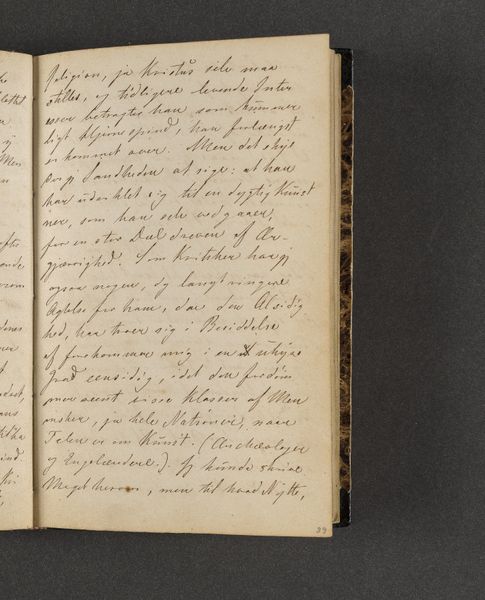 Religion, ja Kristus selv maa
stilles, og tidligere levende Inter
esser betragter han som
ligt Hjernespind, han forlængst
er kommet over. Men det skyl
der jeg Sandheden at sige: at han
har udviklet sig til en dygtig Kunst
ner, som han selv vedgaaer,
for en stor Deel dreven af Ær-
gjærrighed. Som Kritiker har jeg
ogsaa nogen, dog langt ringere
Agtelse for ham, da den Alsidig
hed, han troer sig i Besiddelse
af forekommer mig i en uhyre
Grad eensidig, idet den fordöm
mer visse Klasser af Men
nesker, ja hele Nationer, naar
Talen er om Kunst. (Archæologer
og Engelænderne). Jeg kunde skrive
Meget herom, men til hvad Nytte,
39